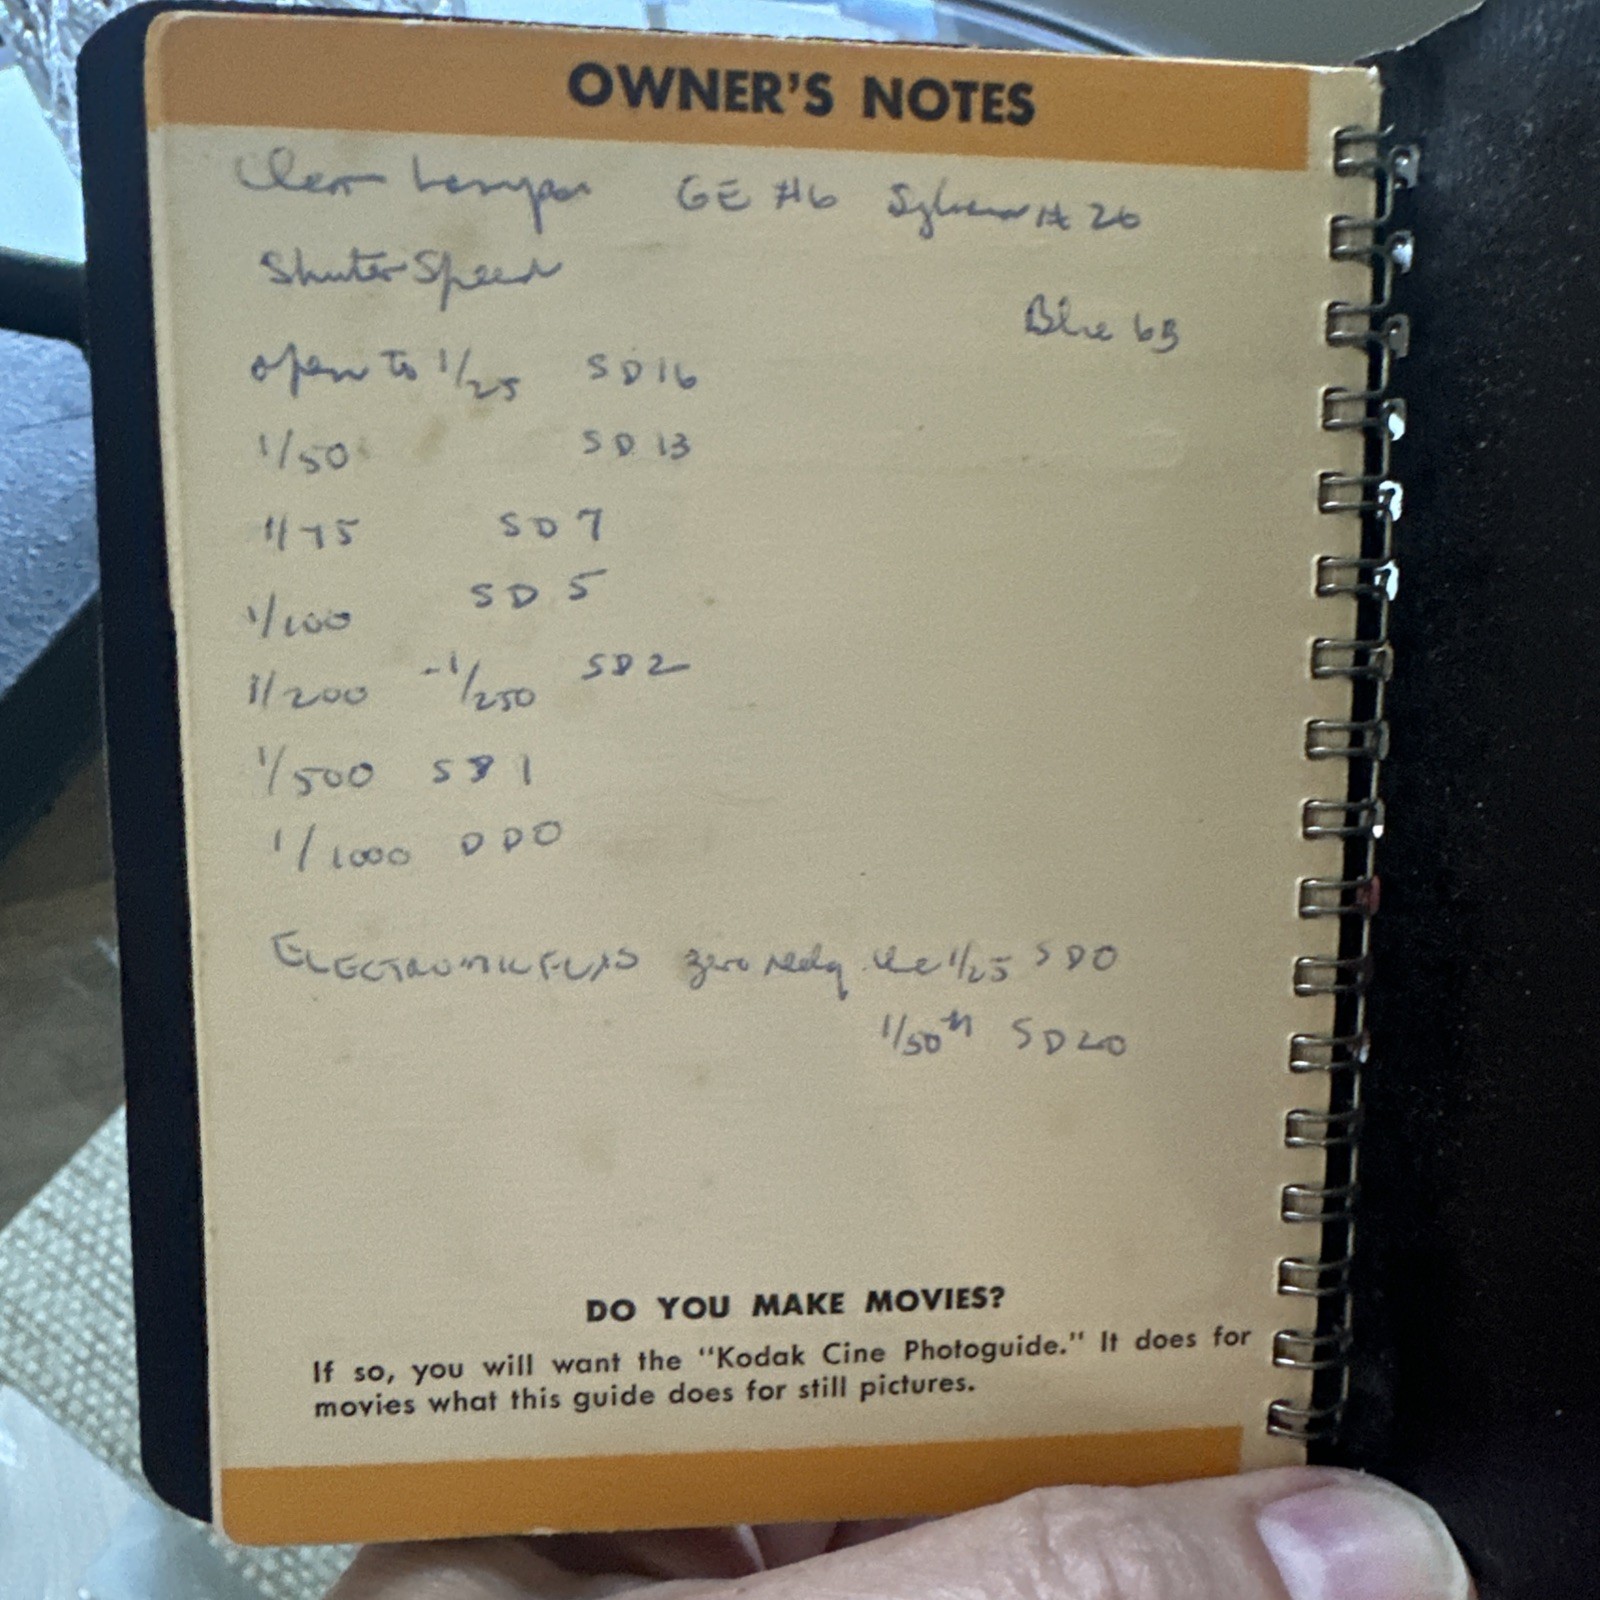 OWNER'S NOTES
Clear Lamps GE #6 Sylvania # 26
Shutter Speed
Blue 6B
open to 1/25 SD 16
1/50 SD 13
1/75 SD 7
1/100 SD 5
1/200 - 1/250 SD 2
1/500 SD 1
1/1000 D D 0
ELECTRONIC zero 1/25 SD 0
1/50th SD 20
DO YOU MAKE MOVIES?
If so, you will want the "Kodak Cine Photoguide." It does for
movies what this guide does for still pictures.